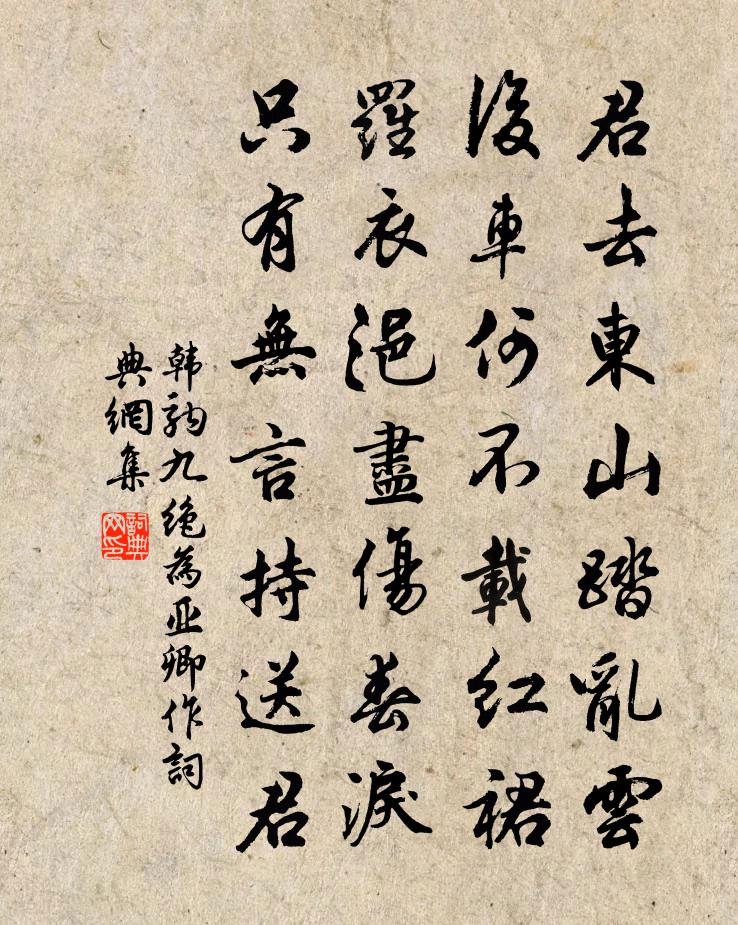 君去東山踏亂雲
後車何不載红裙
羅衣浥盡傷春淚
只有無言持送君
韩駒九绝為亚卿作詞
典網集
詞典
网印